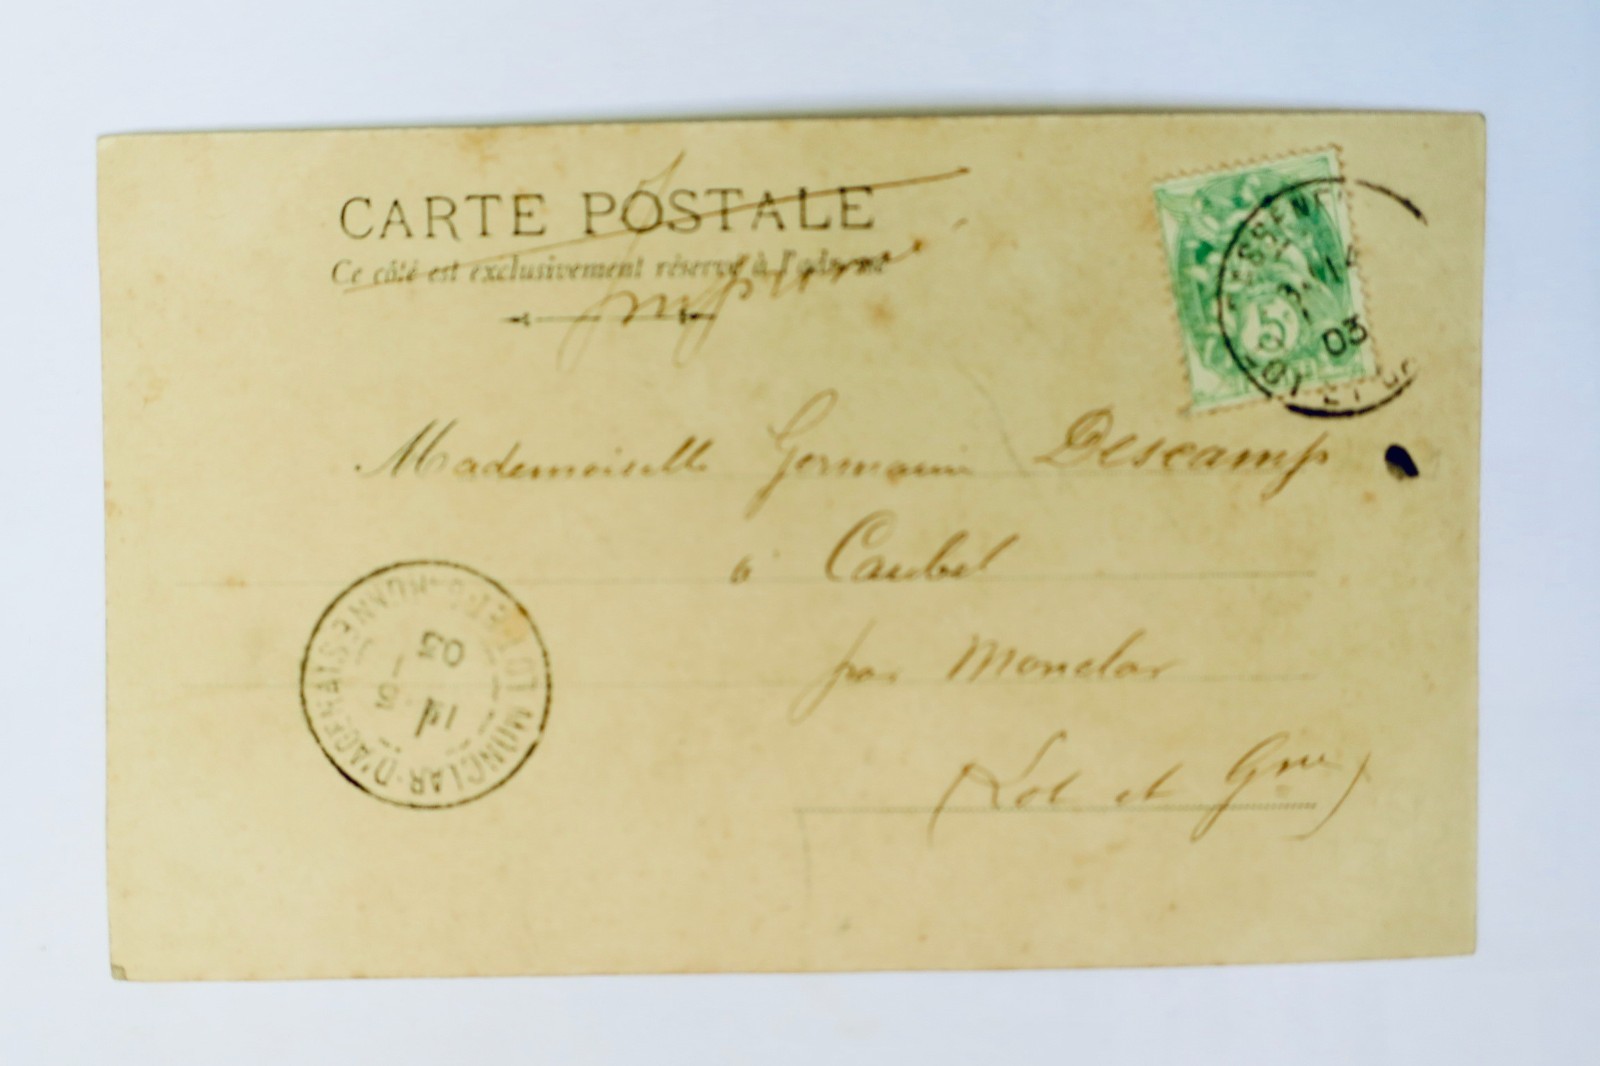 CARTE POSTALE
Ce côté est exclusivement réservé à l'adresse
5
03
Mademoiselle Germaine Descamps
à Caubel
par Monclar
(Lot et Gne)
MONCLAR-D'AGENAIS
LOT-ET-G.
03